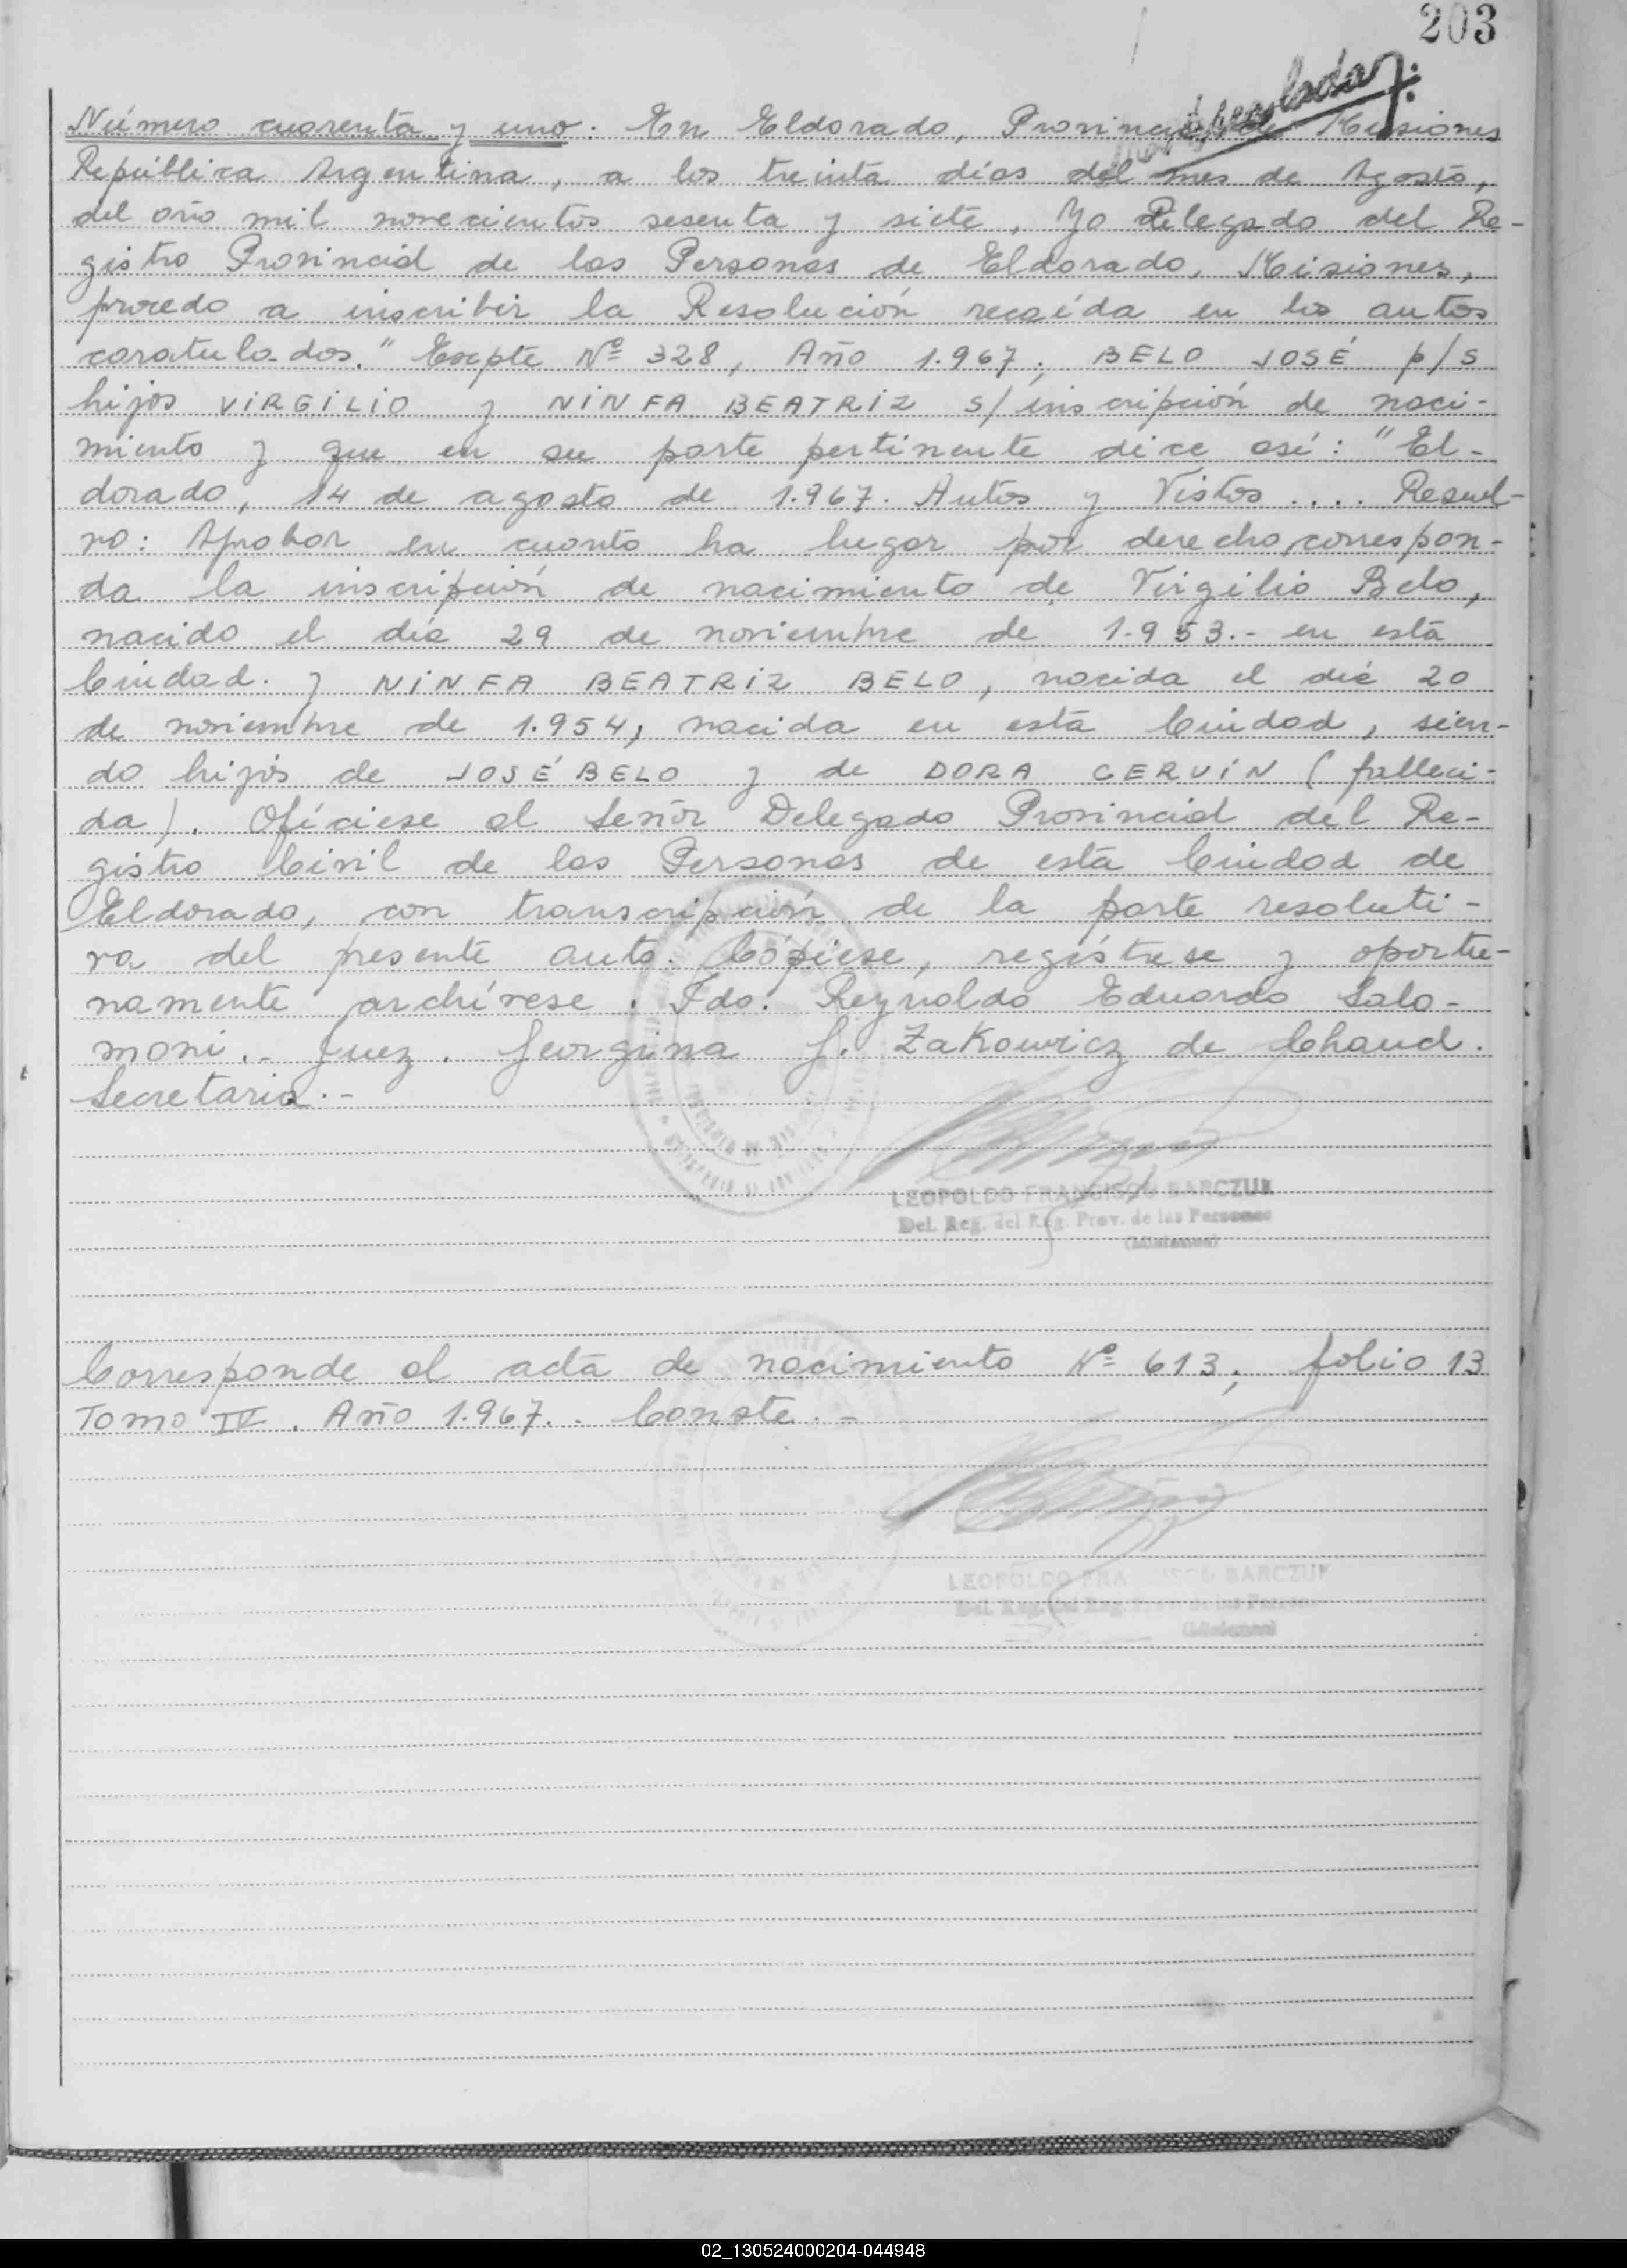 203
Número cuarenta y uno. En Eldorado, Provincia de Misiones
República Argentina, a los treinta días del mes de Agosto,
del año mil novecientos sesenta y siete, Yo Delegado del Re-
gistro Provincial de las Personas de Eldorado, Misiones,
procedo a inscribir la Resolución recaída en los autos
caratulados." Expte Nº 328, Año 1.967; BELO JOSÉ p/s
hijos VIRGILIO y NINFA BEATRIZ s/inscripción de naci-
miento y que en su parte pertinente dice así: "El-
dorado, 14 de agosto de 1.967. Autos y Vistos .... Resuel-
vo: Aprobar en cuanto ha lugar por derecho, correspon-
da la inscripción de nacimiento de Virgilio Belo,
nacido el día 29 de noviembre de 1.953.- en esta
Ciudad. y NINFA BEATRIZ BELO, nacida el día 20
de noviembre de 1.954, nacida en esta Ciudad, sien-
do hijos de JOSÉ BELO y de DORA CERVIN (falleci-
da). Ofíciese al Señor Delegado Provincial del Re-
gistro Civil de las Personas de esta Ciudad de
Eldorado, con transcripción de la parte resoluti-
va del presente auto. Cópiese, regístrese y oportu-
namente archívese. Fdo. Reynaldo Eduardo Salo-
moni.- Juez. Georgina J. Zakowicz de Chaud.
Secretaria.-
LEOPOLDO FRANCISCO BARCZUK
Del. Reg. del Reg. Prov. de las Personas
(Misiones)
Corresponde al acta de nacimiento Nº 613, folio 13
Tomo IV. Año 1.967.. Conste.-
LEOPOLDO FRANCISCO BARCZUK
Del. Reg. del Reg. Prov. de las Personas
(Misiones)
02_130524000204-044948